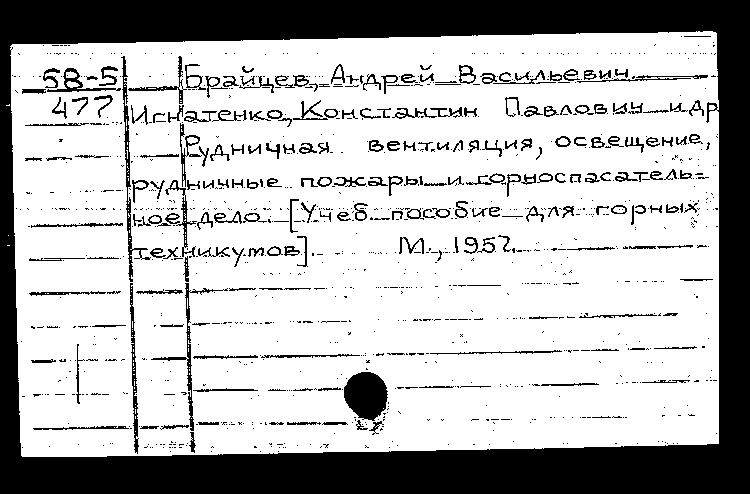 58-5 Брайцев, Андрей Васильевич
477 Игнатенко, Константин Павлович и др
Рудничная вентиляция, освещение,
рудничные пожары и горноспасатель-
ное дело. [Учеб. пособие для горных
техникумов]. М., 1957.